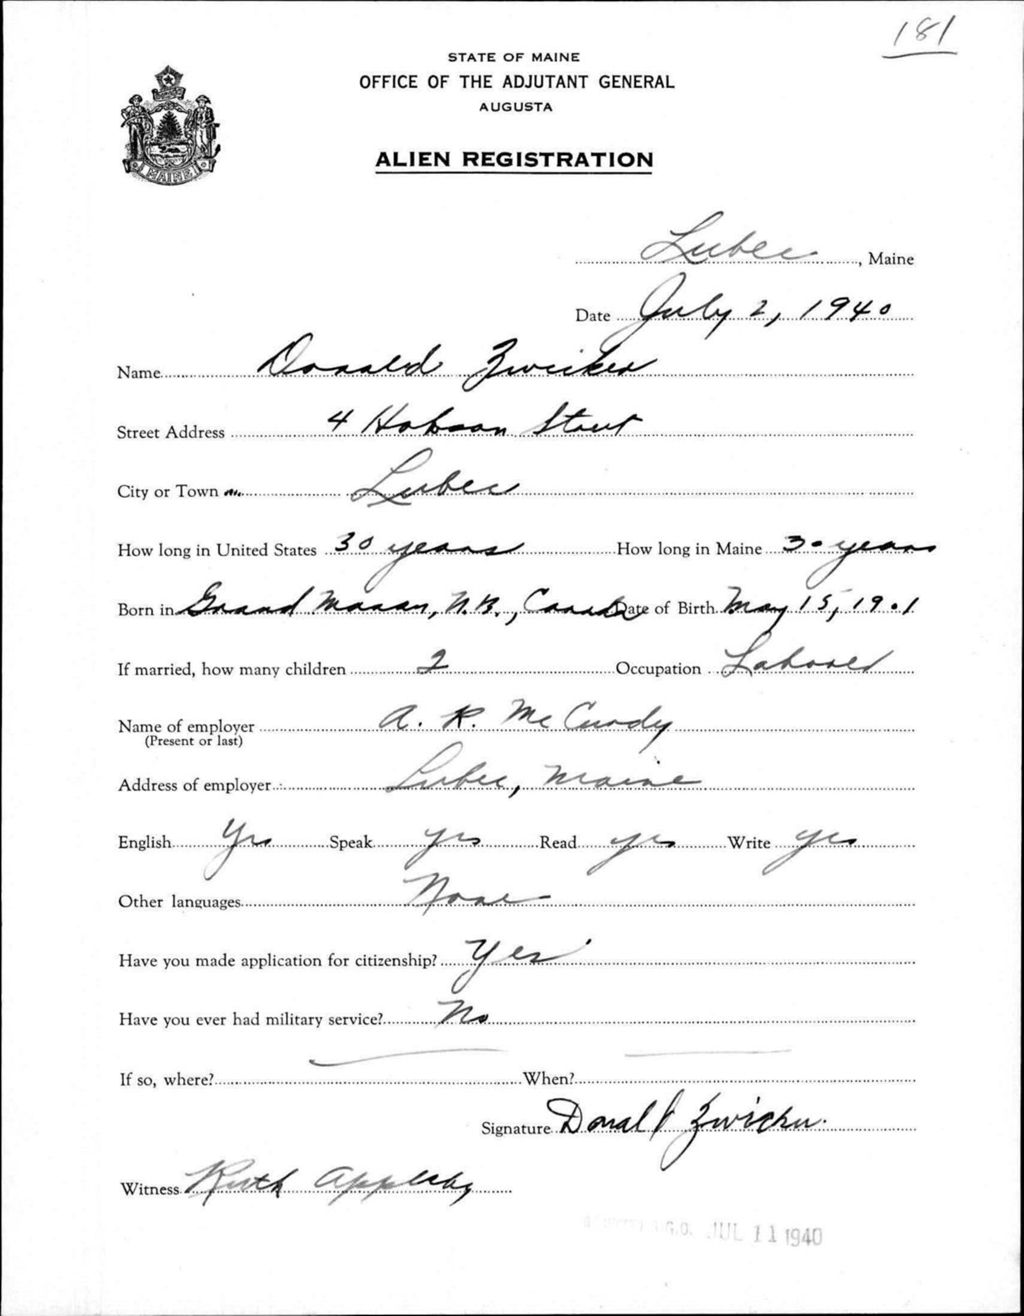 181
STATE OF MAINE
OFFICE OF THE ADJUTANT GENERAL
AUGUSTA
ALIEN REGISTRATION
MAINE
Lubec, Maine
Date July 2, 1940
Name Donald Zwicker
Street Address 4 Hobson Street
City or Town Lubec
How long in United States 30 years How long in Maine 30 years
Born in Grand Manan, N.B., Canada Date of Birth May 15, 1901
If married, how many children 2 Occupation Laborer
Name of employer A. R. McCurdy
(Present or last)
Address of employer Lubec, Maine
English Yes Speak yes Read yes Write yes
Other languages None
Have you made application for citizenship? Yes
Have you ever had military service? No
If so, where? When?
Signature Donald Zwicker.
Witness Ruth Appleby
A.G.O. JUL 11 1940